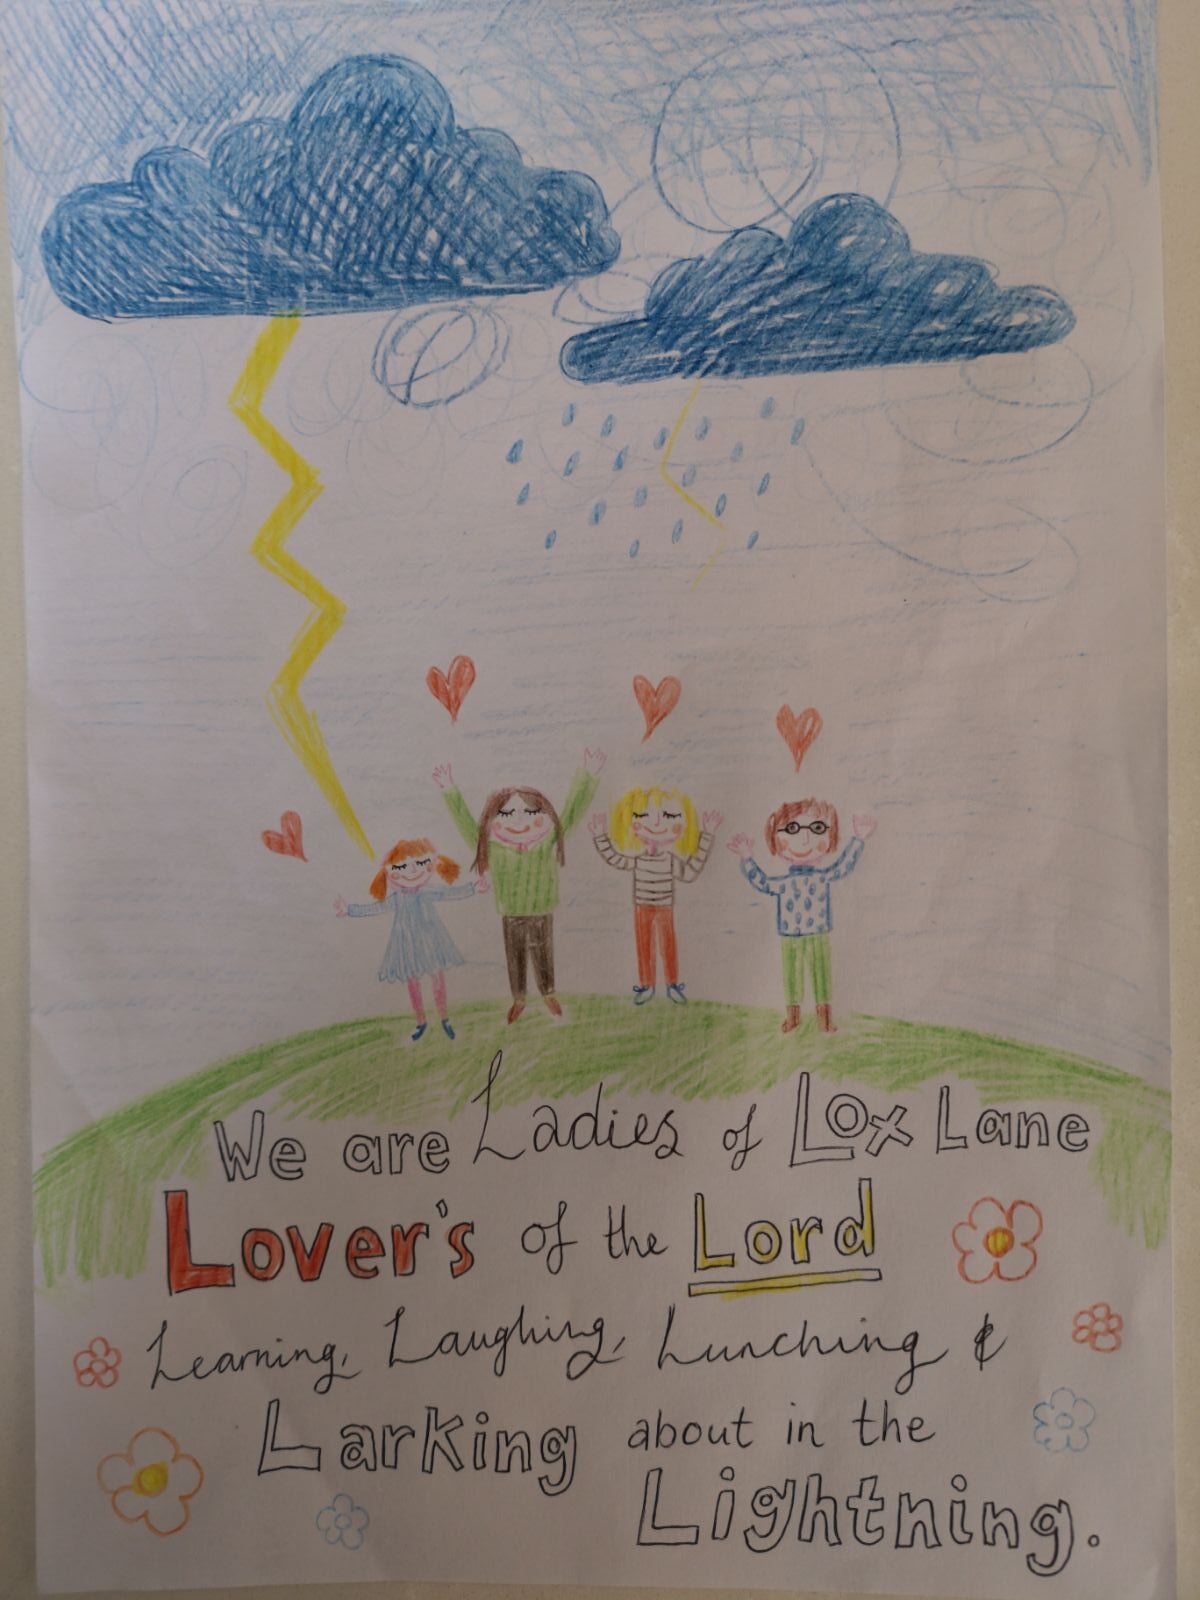 We are Ladies of Lox Lane
Lover's of the Lord
Learning, Laughing, Lunching &
Larking about in the
Lightning.